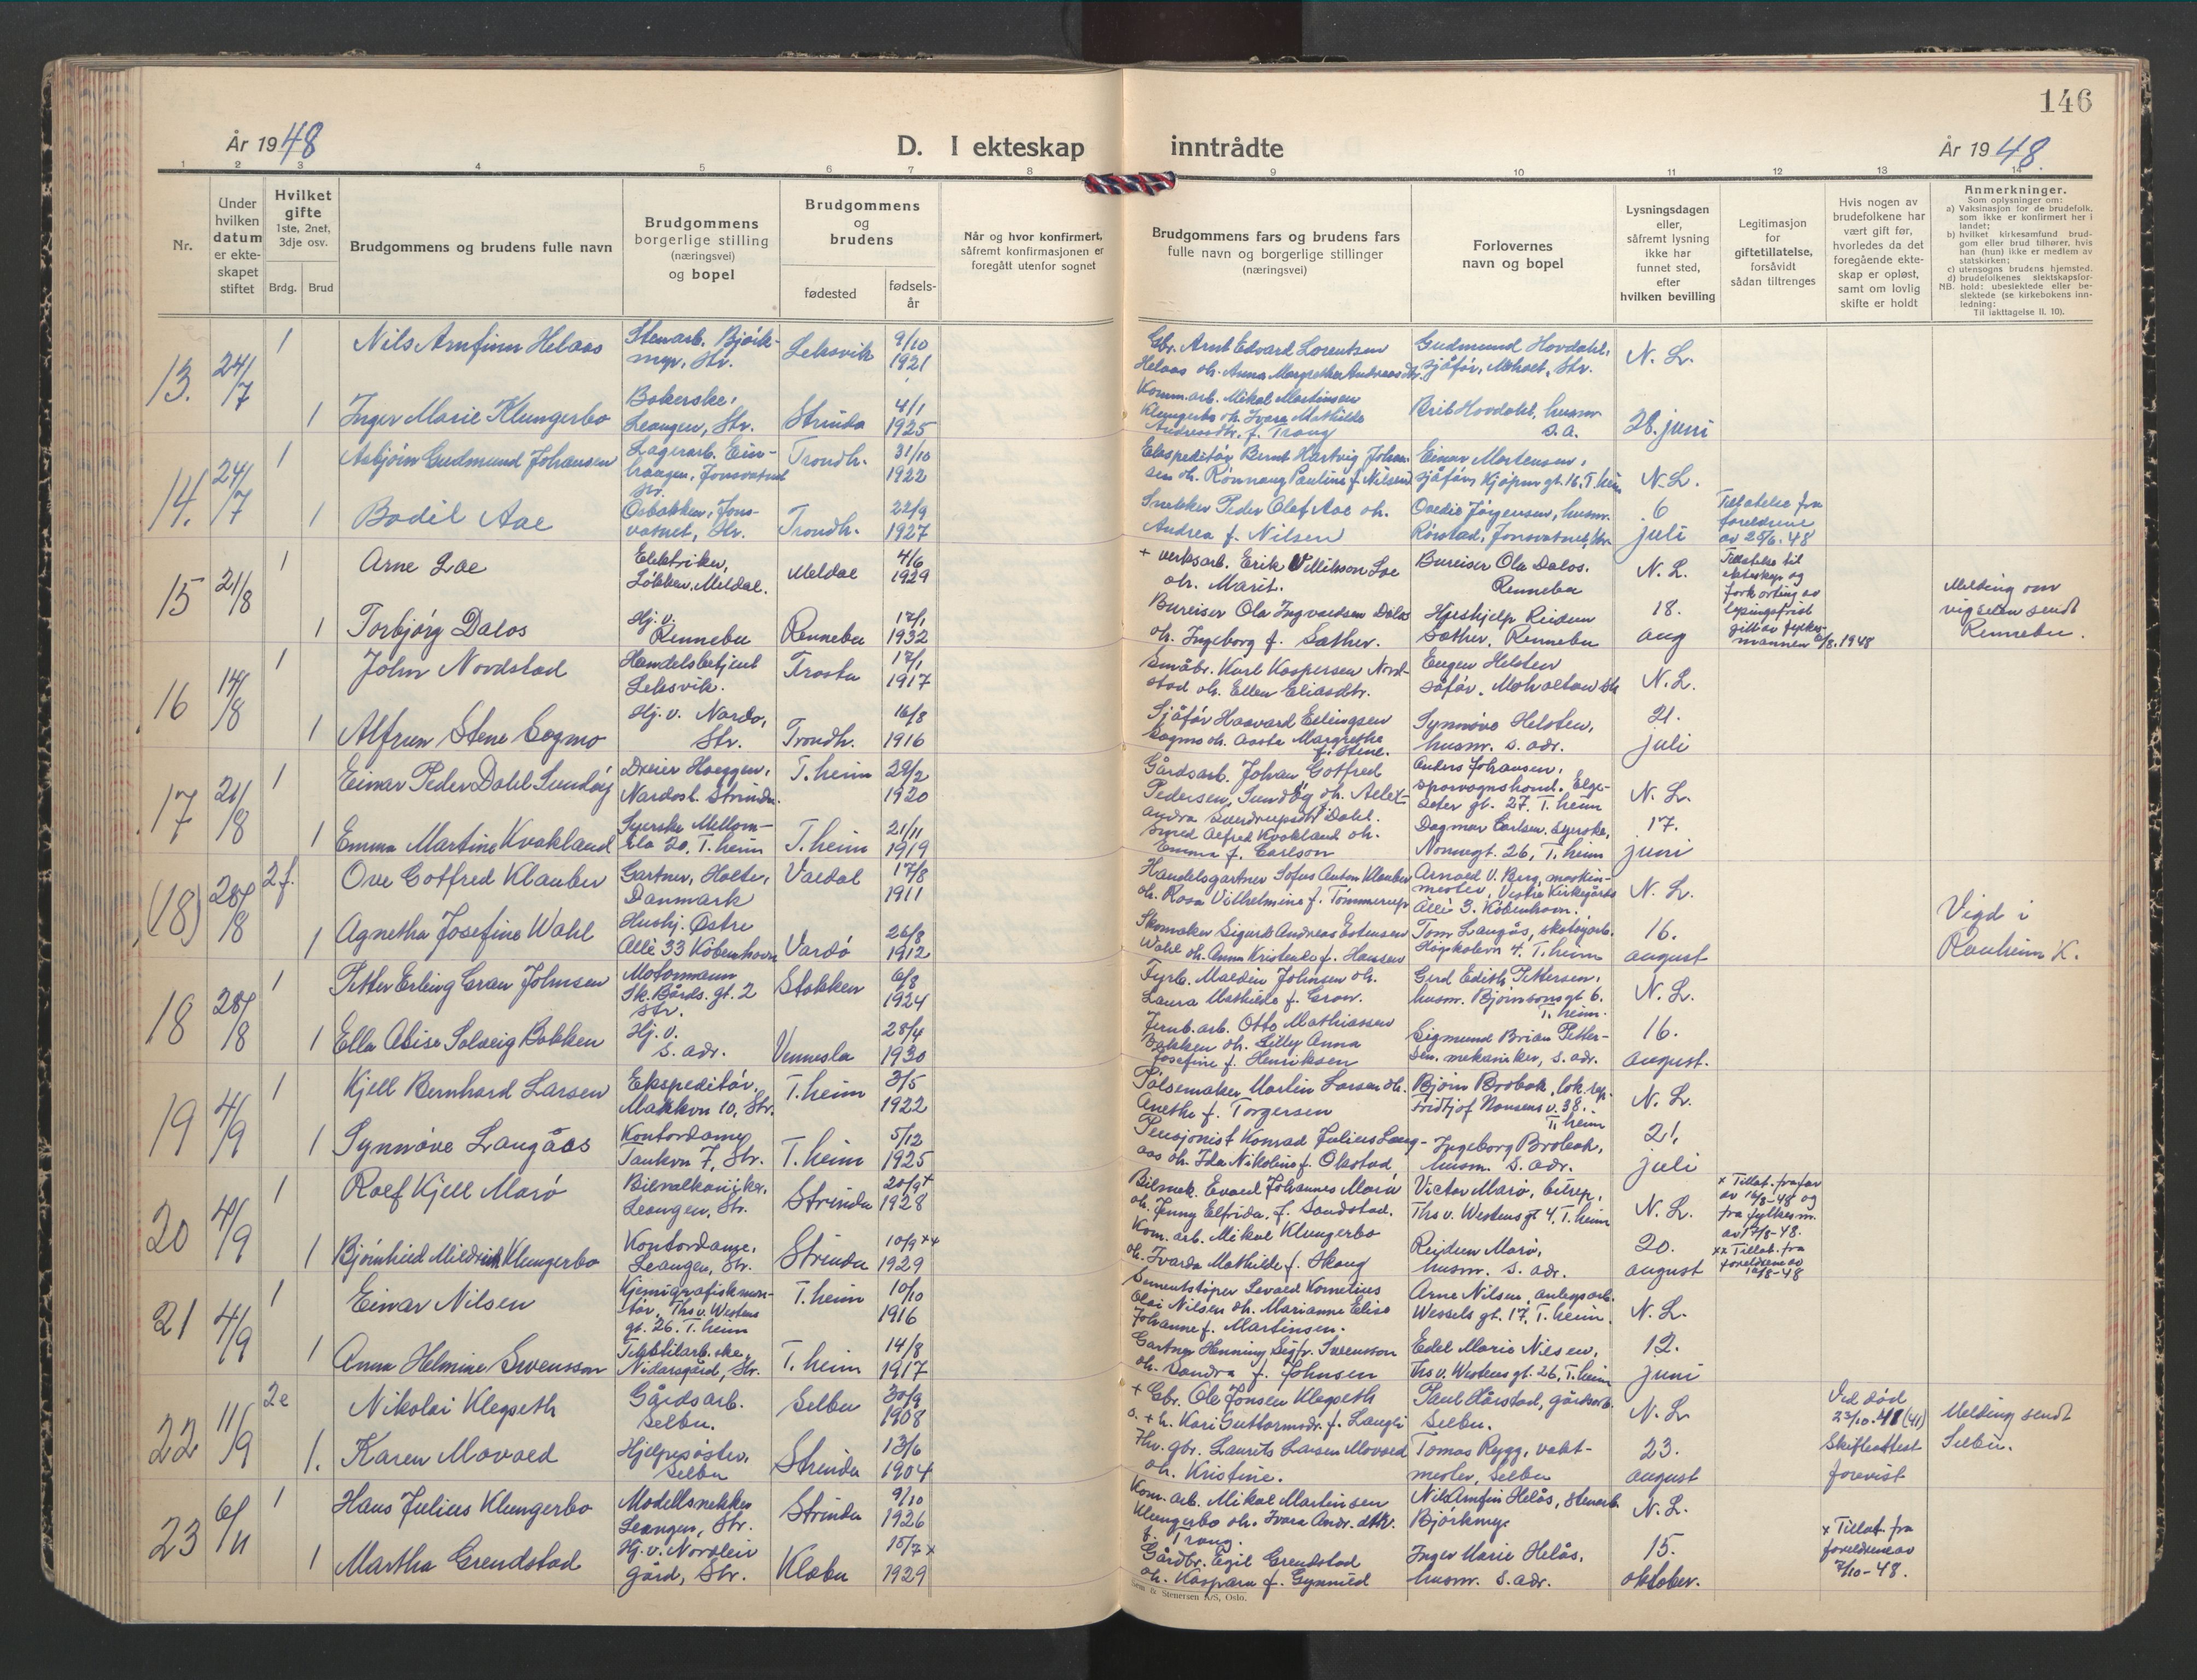 146
År 1948
D. I ekteskap inntrådte
År 1948.
1 2 3 4 5 6 7 8 9 10 11 12 13 14
Nr.
Under hvilken datum er ekteskapet stiftet
Hvilket gifte 1ste, 2net, 3dje osv.
Brdg. Brud
Brudgommens og brudens fulle navn
Brudgommens borgerlige stilling (næringsvei) og bopel
Brudgommens og brudens
fødested
fødselsår
Når og hvor konfirmert, såfremt konfirmasjonen er foregått utenfor sognet
Brudgommens fars og brudens fars fulle navn og borgerlige stillinger (næringsvei)
Forlovernes navn og bopel
Lysningsdagen eller, såfremt lysning ikke har funnet sted, efter hvilken bevilling
Legitimasjon for giftetillatelse, forsåvidt sådan tiltrenges
Hvis nogen av brudefolkene har vært gift før, hvorledes da det foregående ekteskap er opløst, samt om lovlig skifte er holdt
Anmerkninger.
Som oplysninger om:
a) Vaksinasjon for de brudefolk, som ikke er konfirmert her i landet;
b) hvilket kirkesamfund brudgom eller brud tilhører, hvis han (hun) ikke er medlem av statskirken;
c) utensogns brudens hjemsted.
d) brudefolkenes slektskapsforhold: ubeslektede eller beslektede (se kirkebokens innledning:
NB. Til iakttagelse II. 10).
13. 24/7 1 Nils Arnfinn Helaas Stenarb. Bjørkmyr, Str. Leksvik 9/10 1921 Gbr. Arnt Edvard Lorentsen Helaas oh. Anna Margrethe Andreasdtr. Gudmund Hovdahl, sjåfør, Moholt, Str. N. L.
1 Inger Marie Klungerbo Bakerske, Leangen, Str. Strinda 4/1 1925 Komm.arb. Mikal Martinsen Klungerbo oh. Ivara Mathilde Andreasdtr. f. Trang Brit Hovdahl, husm. s.a. 28. juni
14. 24/7 1 Asbjørn Gudmund Johansen Lagerarb. Jonsvatnet Str. Trondh. 31/10 1922 Ekspeditør Bernt Hartvig Johansen oh. Rønnaug Pauline f. Nilsen Einar Mortensen, sjåfør, Kjøpm.gt. 16, T.heim N.L.
1 Bodil Aae Jonsvatnet, Str. Trondh. 22/9 1927 Snekker Peder Olaf Aae oh. Andrea f. Nilsen Ovedie Jørgensen, husm. Rønstad, Jonsvatnet, Str. 6 juli Tillatelse fra foreldrene av 25/6.48
15 21/8 1 Arne Loe Elektriker, Løkken, Meldal. Meldal 4/6 1929 + verksarb. Erik Loe oh. Marit. Bureiser Ola Dalos. Rennebu N. L. Tillatelse til ekteskap og forkorting av lysingsfrist gitt av fylkesmannen /8.1948 Melding om vigselen sendt Rennebu.
1 Torbjørg Dalos Hj. v. Rennebu Rennebu 17/1 1932 Bureiser Ola Ingvaldsen Dalos oh. Ingeborg f. Sæther. Hjelshjelp Reidun Sæther, Rennebu 18. aug
16 14/8 1 John Nordstad Handelsbetjent Leksvik. Frosta 17/1 1917 Småbr. Karl Kaspersen Nordstad oh. Ellen Eliasdtr. Eugen Helsten såfør, Moholtan Str N.L.
1 Alfrun Stene Sogmo Hj. v. Nardo, Str. Trondh. 16/8 1916 Sjåfør Haavard Erlingsen Sogmo oh. Aasta Margrethe f. Stene. Synnøve Helsten, husm. s. adr. 21. juli
17 21/8 1 Einar Peder Dahl Sundøy Dreier Hoeggen, Nardosl. Strinda. T.heim 29/2 1920 Gårdsarb. Johan Gotfred Pedersen Sundøy oh. Alexandra Sverdrupsdtr Dahl. Anders Johansen, sporvognskond. Elgeseter gt. 27, T.heim N. L.
1 Emma Martine Kvakland Syerske Mellomila 20, T.heim T.heim 21/11 1919 Smed Alfred Kvakland oh. Emma f. Carlson Dagmar Carlsen, syerske, Nonnegt. 26, T.heim 17. juni
(18) 28/8 2 f. Ove Gotfred Klauber Gartner, Holte, Danmark Valdal 17/8 1911 Handelsgartner Sofus Anton Klauber oh. Rosa Vilhelmine f. Tømmerup Arnold V. Berg, maskinmester, Vestre Kirkegårds Allè 3. København. N. L.
1 Agnetha Josefine Wahl Hushj. Østre Allè 33 København Vardø 26/8 1912 Skomaker Sigurd Andreas Estensen Wahl oh. Anna Kristense f. Hansen Tom Langås, skotøyarb. Høgskolevn 4. T.heim 16. august Vigd i Ranheim K.
18 28/8 1 Petter Erling Gran Johnsen Motormann Sk. Bårds. gt. 2 Str. Stokken 6/8 1924 Fyrb. Maldin Johnsen oh. Laura Mathilde f. Gran. Gerd Edith Pettersen, husm. Bjørnsonsgt 6. T.heim. N. L.
1 Ella Alise Solveig Bakken Hj. v. s. adr. Vennesla 28/4 1930 Jernb.arb. Otto Mathiassen Bakken oh. Lilly Anna Josefine f. Henriksen Sigmund Brian Pettersen. mekaniker, s. adr. 16. august.
19 4/9 1 Kjell Bernhard Larsen Ekspeditør, 10, Str. T.heim 3/5 1922 Pølsemaker Martin Larsen oh. Anethe f. Torgersen Bjørn Brobak, lok.rep. Fridtjof Nansens v. 38. T.heim N. L.
1 Synnøve Langåas Kontordame, 7, Str. T.heim 5/12 1925 Pensjonist Konrad Julius Langaas oh. Ida Nikoline f. Olastad, Ingeborg Brobak, husm. s. adr. 21. juli
20 4/9 1 Rolf Kjell Marø Leangen, Str. Strinda 20/9 + 1928 Bilmek. Evald Johannes Marø oh. Jenny Elfrida f. Sandstad. Victor Marø, bilrep, Ths v. Westens gt 4, T.heim N. L. x Tillat. fra far av 16/8-48 og fra fylkesm. av 17/8-48.
1 Bjørnhild Mildrid Klungerbo Kontordame, Leangen, Str. Strinda 10/9 ++ 1929 Kom. arb. Mikal Klungerbo oh. Ivarda Mathilde f. Skaug Reidun Marø, husm. s. adr. 20. august xx Tillat. fra foreldrene av 16/8-48
21 4/9 1 Einar Nilsen Kjemigrafiskmontør, Ths v. Westens gt. 26. T.heim T.heim 10/10 1916 Sementstøper Levald Kornelius Olai Nilsen oh. Marianne Elise Johanne f. Martinsen. Arne Nilsen, anlegsarb. Wessels gt. 17, T.heim. N. L.
1 Anna Helmine Svensson Tekstilarb.ske, Nidarogård, Str. T.heim 14/8 1917 Gartner Henning Sigfr. Svensson oh. Sandra f. Johnsen Edel Marie Nilsen, Ths v. Westens gt. 26, T.heim 12. juni
22 11/9 2e Nikolai Klegseth Gårdsarb. Selbu. Selbu 30/9 1908 + Gbr. Ole Jonsen Klegseth o. + h. Kari Guttormsdr. f. Langli Paul Hårstad, gårdsarb. Selbu. N. L. Ved død 23/10.41 (41) Skifteattest forevist Melding sendt Selbu.
1. Karen Movold Hjelpesøster, Selbu Strinda 13/6 1904 Fhv. gbr. Laurits Larsen Movold oh. Kristine. Tomas Rygg, vaktmester, Selbu 23. august
23 6/11 1 Hans Julius Klungerbo Modellsnekker Leangen, Str. Strinda 9/10 1926 Kom. arb. Mikal Martinsen Klungerbo oh. Ivara Andr.dtr. f. Trang. Nils Arnfin Helås, stenarb. Bjørkmyr N. L.
1 Martha Grendstad Hj. v. Nordleir gård, Str. Klæbu 15/7 x 1929 Gårdbr. Egil Grendstad oh. Kaspara f. Gynnild Inger Marie Helås, husm. s. adr. 15. oktober. x Tillat. fra foreldrene av 7/10-48.
Sem & Stenersen A/S, Oslo.